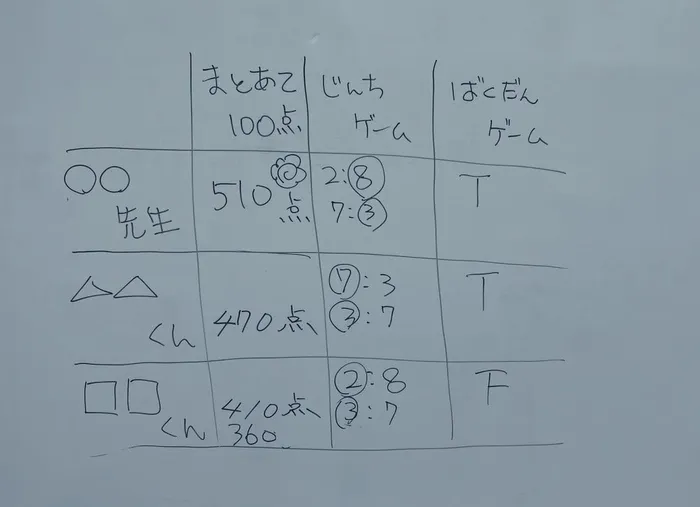 まとあて じんち ばくだん
100点 ゲーム ゲーム
○○ 510 2:8 T
先生 点 7:3
△△ 7:3 T
くん 470点 3:7
□□ 2:8 F
くん 410点 3:7
360